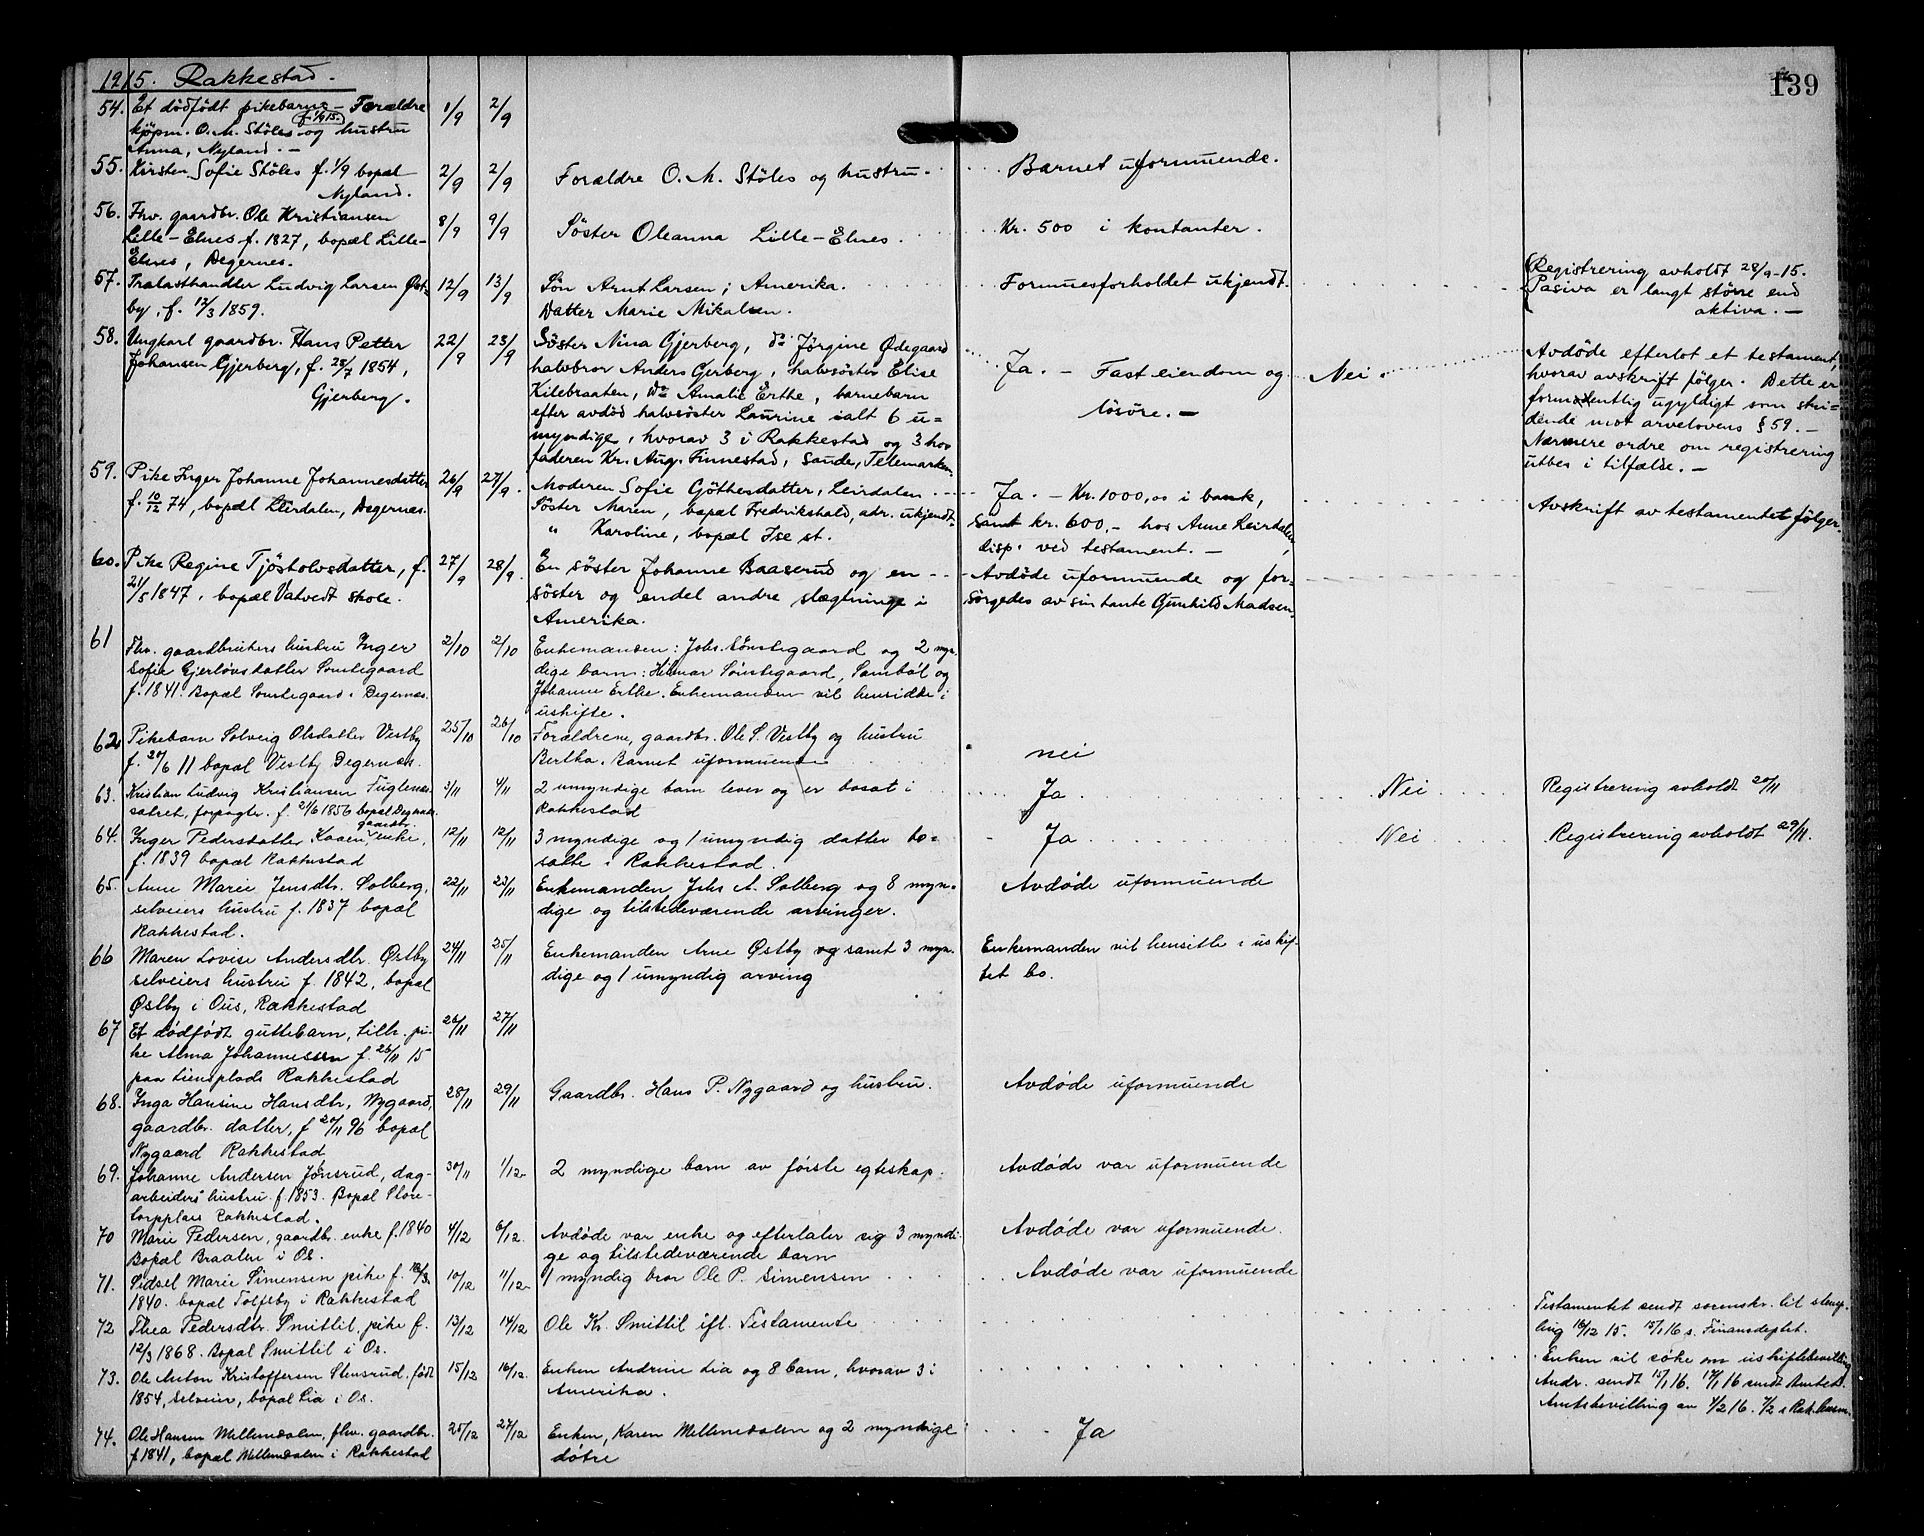 1915. Rakkestad.
139
54. Et dödfödt pikebarn – Forældre 1/9 2/9
f. 1/9 15.
kjöpm. O. M. Stöles og hustru
Anna, Nyland. –
55. Kirsten Sofie Stöles f. 1/9 bopæl 2/9 2/9 Forældre O. M. Stöles og hustru. Barnet uformuende.
Nyland.
56. Fhv. gaardbr. Ole Kristiansen 8/9 9/9 Söster Oleanna Lille-Elnes. Kr. 500 i kontanter.
Lille-Elnes f. 1827, bopæl Lille-
Elnes, Degernes.
57. Trælasthandler Ludvig Larsen Øst= 12/9 13/9 Sön Arnt Larsen, i Amerika. Formuesforholdet ukjendt. Registrering avholdt 28/9-15.
by, f. 12/3 1859. Datter Marie Mikalsen. Pasiva er langt större end
aktiva. –
58. Ungkarl gaardbr. Hans Petter 22/9 23/9 Söster Nina Gjerberg, do Jörgine Ødegaard Ja. – Fast eiendom og Nei. Avdöde efterlot et testament,
Johansen Gjerberg, f. 28/7 1854, halvbror Anders Gjerberg, halvsöster Elise lösöre. – hvorav avskrift fölger. Dette er
Gjerberg. Kilebraaten, do Amalie Erthe, barnebarn formodentlig ugyldigt som stri=
efter avdöd halvsöster Laurine ialt 6 u= dende mot arvelovens § 59. –
myndige, hvorav 3 i Rakkestad og 3 hos Nærmere ordre om registrering
faderen Kr. Aug. Finnestad, Sande, Telemarken. utbes i tilfælde. –
59. Pike Inger Johanne Johannesdatter 26/9 27/9. Moderen Sofie Göthesdatter, Leirdalen Ja. – Kr. 1000,00 i bank, Avskrift av testamentet fölger.
f. 10/12 74, bopæl Leirdalen, Degernes. Söster Maren, bopæl Fredrikshald, adr. ukjendt. samt kr. 600.– hos Anne Leirdalen,
" Karoline, bopæl Ise st. disp. ved testament. –
60. Pike Regine Tjöstolvsdatter, f. 27/9 28/9. En söster Johanne Baaserud og en Avdöde uformuende og for=
21/5 1847, bopæl Vatvedt skole. söster og endel andre slægtninge i sörgedes av sin tante Gunhild Madsen.
Amerika.
61 Fhv. gaardbrukers hustru Inger 2/10 2/10 Enkemanden: Johs. Sönstegaard og 2 myn-
Sofie Gjerlövsdatter Sönstegaard dige barn: Hilmar Sönstegaard, Sambøl og
f. 1841. Bopæl Sönstegaard i Degernes. Johanne Erthe. Enkemanden vil hensidde i
uskifte.
62. Pikebarn Solveig Olsdatter Vestby 25/10 26/10 Forældrene, gaardbr. Ole S. Vestby og hustru nei
f. 20/6 11 bopæl Vestby Degernes. Bertha. Barnet uformuende
63. Kristian Ludvig Kristiansen Fuglenes= 3/11 4/11 2 umyndige barn lever og er bosat i Ja. Nei Registrering avholdt 20/11
sætret, forpagter. f. 21/6 1856 bopæl Degernes. Rakkestad
64. Inger Pedersdatter Kaaen, gaardbr. enke, 12/11 12/11 3 myndige og 1 umyndig datter bo= Ja Nei Registrering avholdt 29/11.
f. 1839 bopæl Rakkestad satte i Rakkestad.
65. Anne Marie Jensdtr. Solberg, 22/11 23/11 Enkemanden Johs A. Solberg og 8 myn= Avdøde uformuende
selveiers hustru f. 1837 bopæl dige og tilstedeværende arvinger.
Rakkestad.
66 Maren Lovise Andersdtr. Østby 24/11 25/11 Enkemanden Arne Østby og samt 3 myn- Enkemanden vil hensitte i uskif-
selveiers hustru f. 1842, bopæl dige og 1 umyndig arving tet bo.
Østby i Ous, Rakkestad
67 Et dødfødt guttebarn, tilh. pi- 26/11 27/11
ke Alma Johannessen f. 26/11 15
paa Liensplads Rakkestad
68. Inga Hansine Hansdtr, Nygaard, 28/11 29/11 Gaardbr. Hans P. Nygaard og hustru. Avdøde uformuende
gaardbr. datter, f 20/11 96 bopæl
Nygaard Rakkestad
69. Johanne Andersen Jönsrud, dag- 30/11 1/12 2 myndige barn av første egteskap. Avdøde var uformuende
arbeiders hustru f. 1853. Bopæl Store-
torpplass Rakkestad.
70 Marie Pedersen, gaardbr. enke f. 1840 4/12 6/12. Avdøde var enke og efterlater sig 3 myndi- Avdøde var uformuende.
Bopæl Braaten i Os. ge og tilstedeværende barn
71. Sidsel Marie Simensen pike f. 18/3 10/12 11/12 1 myndig bror Ole P. Simensen Avdøde var uformuende
1840. bopæl Tolfsby i Rakkestad
72 Thea Pedersdtr. Smittil, pike f. 13/12 14/12 Ole Kr. Smittil ifl. Testamente Testamentet sendt sorenskr. til stemp-
12/3 1868. Bopæl Smittil i Os. ling 16/12 15. 15/1 16 s. Finansdeptet.
73. Ole Anton Kristoffersen Stensrud, født 15/12 16/12. Enken Andrine Lia og 8 barn, hvorav 3 i Enken vil søke om uskiftebevilling
1854, selveier, bopæl Lia i Os. Amerika. Andr. sendt 15/1 16. 17/1 16 sendt Amtet.
Amtsbevilling av 1/2 16. 7/2 s Rak. lensm.
74. Ole Hansen Mellemdalen, fhv. gaardbr. 25/12 27/12 Enken, Karen Mellemdalen og 2 myndige Ja
f 1841, bopæl Mellemdalen i Rakkestad døtre